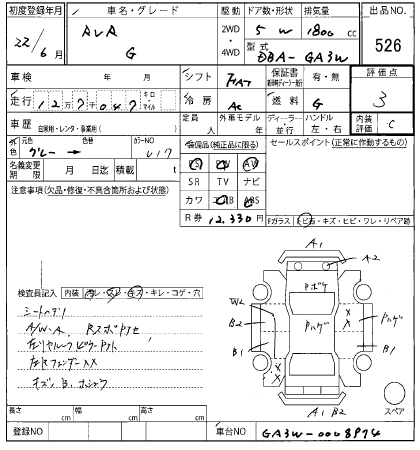 初度登録年月 車名・グレード 駆動 ドア数・形状 排気量 出品NO.
22/6月 AVA G 2WD・4WD 5 W 1800cc 526
型式 DBA-GA3W
車検 年 月 シフト FAT 保証書 有・無 評価点
走行 127千047 キロ マイル 冷房 AC 燃料 G 3
車歴 自家用・レンタ・事業用( ) 定員 人 外車モデル 年 ディーラー・並行 ハンドル 左・右 内装評価 C
外色 元色 色替 カラーNO 装備品(純正品に限る) セールスポイント(正常に作動するもの)
グレー → U17 PS PW AW
名義変更期限 月 日迄 積載 t SR TV ナビ
注意事項(欠品・修復・不具合箇所および状態) カワ エアB ABS
R券 12,330円 Fガラス トビ石・キズ・ヒビ・ワレ・リペア跡
A1
A2
Pボケ
検査員記入 内装 汚レ・スレ・キズ・キレ・コゲ・穴
W2
シートヘタリ
B2 Pハゲ Pハゲ
A/W・A
B1 B1
キズ、B、
スペア
A1 B2
長さ cm 幅 cm 高さ cm
登録NO 車台NO GA3W-0008974